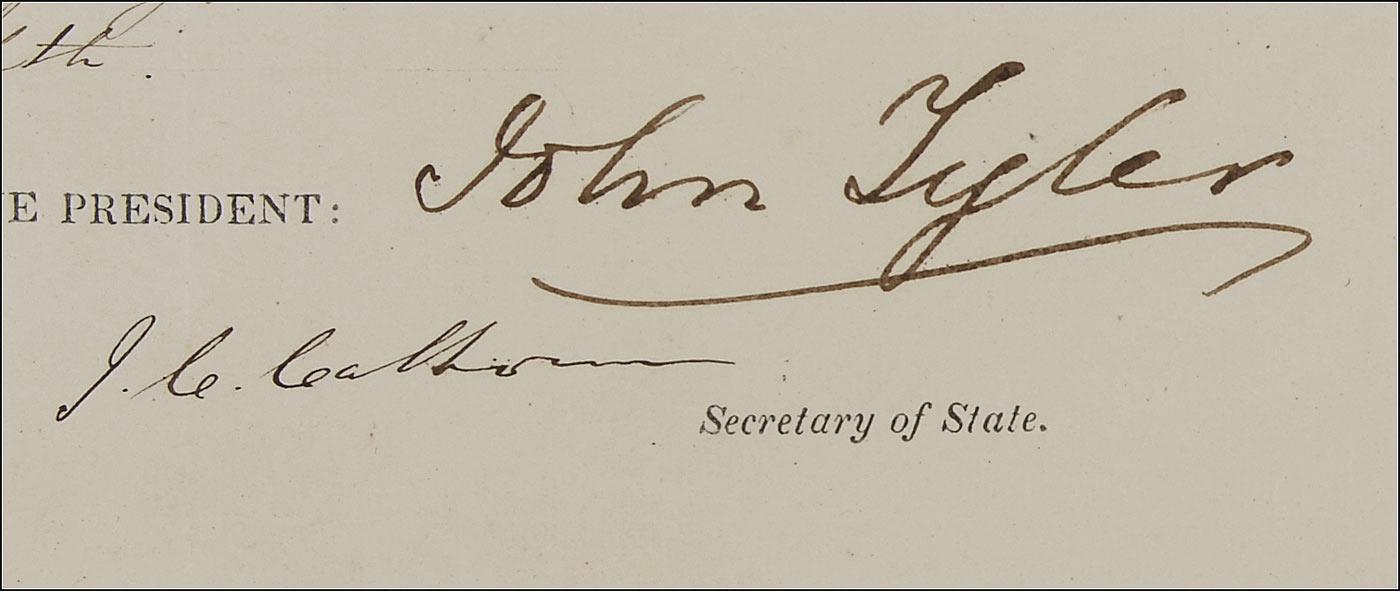 th.
E PRESIDENT: John Tyler
J. C. Calhoun
Secretary of State.